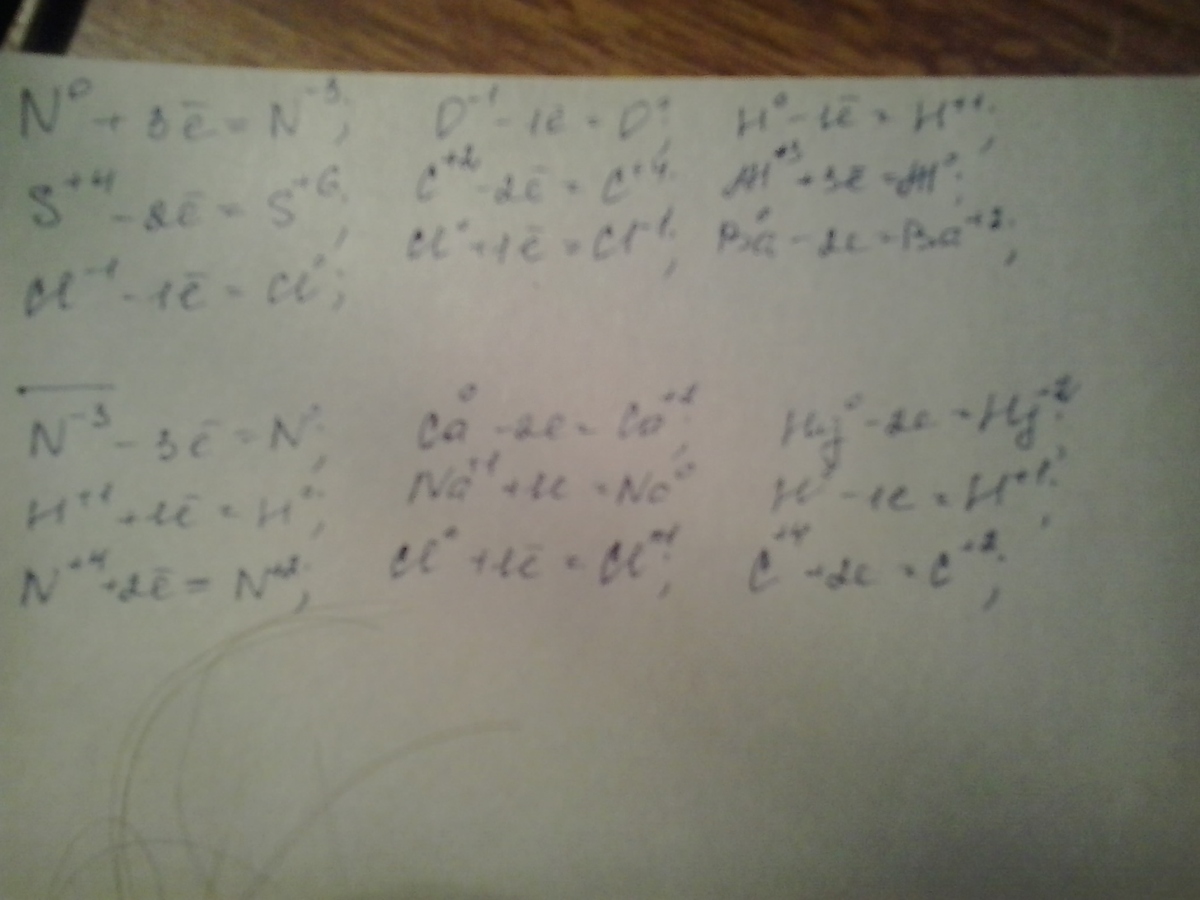 N⁰ + 3ē = N⁻³; O⁻¹ - 1ē = O⁰; H⁰ - 1ē = H⁺¹;
S⁺⁴ - 2ē = S⁺⁶; C⁺² - 2ē = C⁺⁴; Al⁺³ + 3ē = Al⁰;
Cl⁰ + 1ē = Cl⁻¹; Ba⁰ - 2e = Ba⁺²;
Cl⁻¹ - 1ē = Cl⁰;
N⁻³ - 3ē = N⁰; Ca⁰ - 2e = Ca⁺²; Hg⁰ - 2e = Hg⁺²;
H⁺¹ + 1ē = H⁰; Na⁺¹ + 1e = Na⁰ H⁰ - 1e = H⁺¹;
N⁺⁴ + 2ē = N⁺²; Cl⁰ + 1ē = C⁺⁴ + 2e = C⁺²;